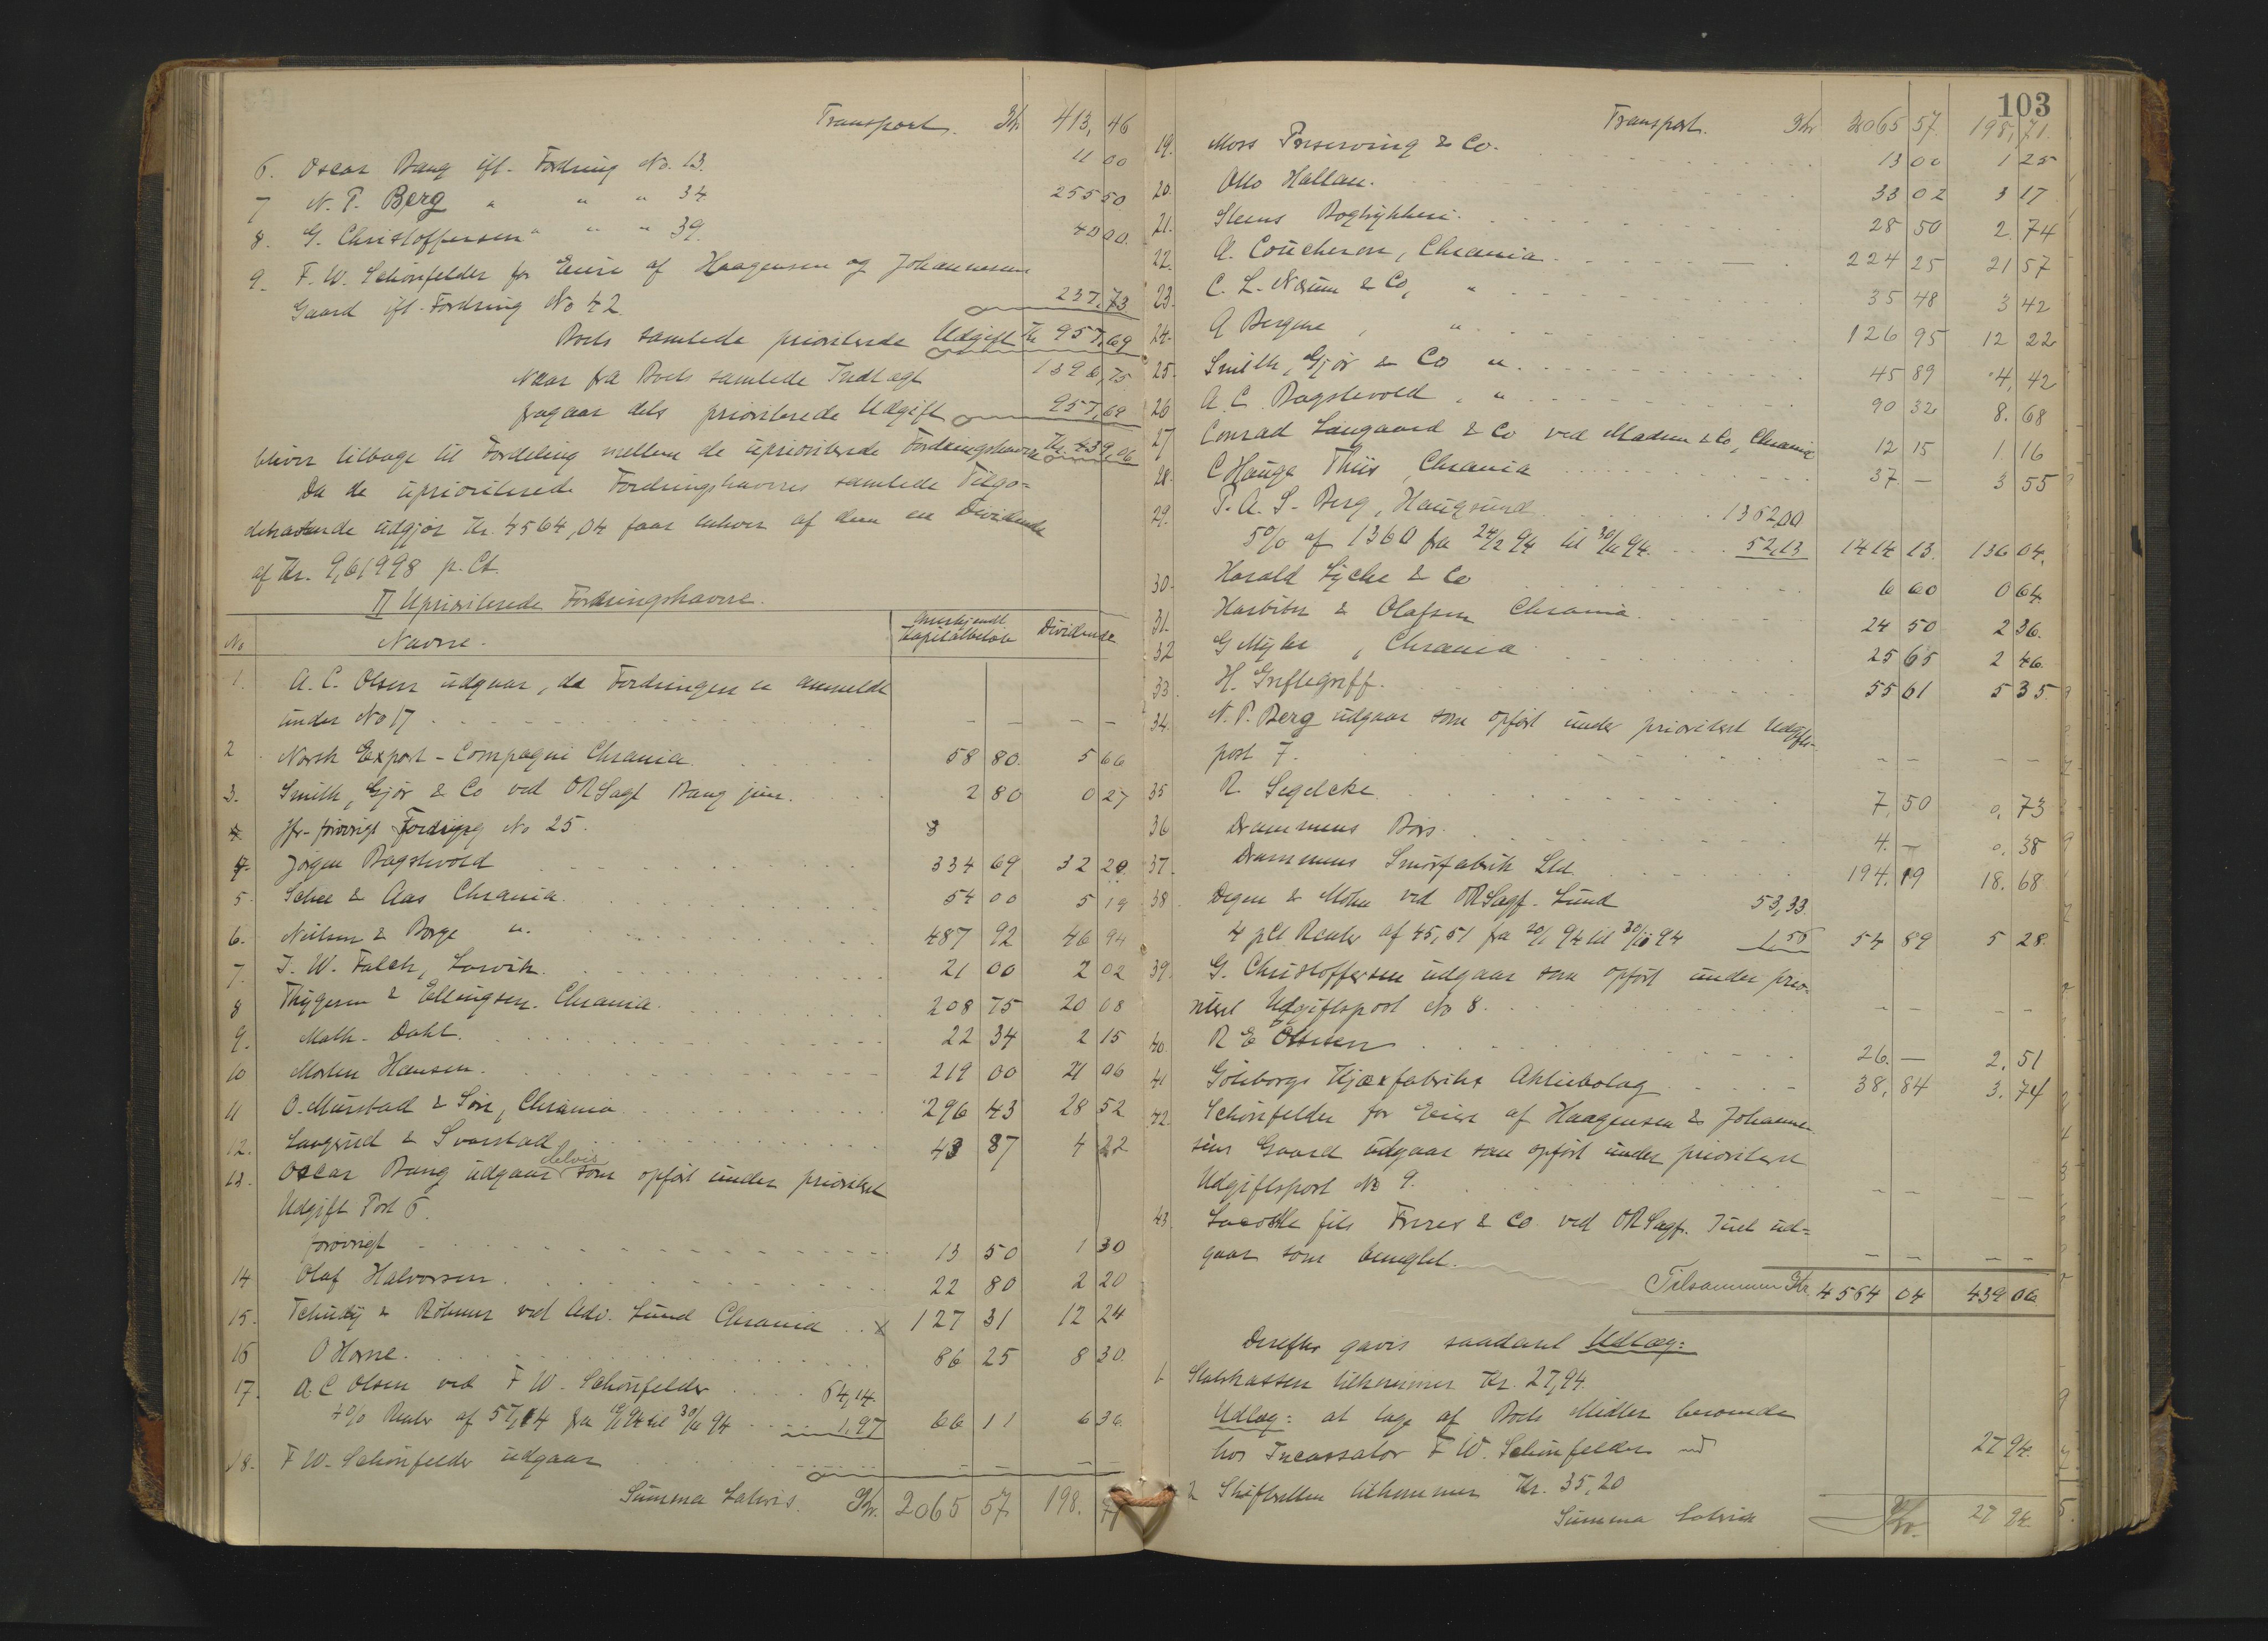 Transport. Kr. 413,46
6. Oscar Bang ifl. Fordring No. 13. 11 00
7 N. P. Berg " " " 34. 255 50
8. G. Christoffersen " " " 39. 40 00.
9. F. W. Schönfelder for Eiere af Haagensen og Johannesens
Gaard ifl. Fordring No 42. 237,73
Boets samlede prioriterede Udgift Kr 957,69
Naar fra Boets samlede Indtægt 1396,75
fragaar dets prioriterede Udgift 957,69
bliver tilbage til Fordeling mellem de uprioriterede Fordringshavere Kr. 439,06
Da de uprioriterede Fordringshaveres samlede Tilgo-
dehavende udgjør Kr. 4564,04 faar enhver af dem en Dividende
af Kr. 9,61998 p. Ct.
II Uprioriterede Fordringshavere.
No Navne. Anerkjendt Kapitalbeløb Dividende
1. A. C. Olsen udgaar, da Fordringen er anmeldt
under No 17 - - - -
2 Norsk Export-Compagni Chrania. 58 80. 5 66
3. Smith, Gjør & Co ved ORSagf Bang jun. 2 80 0 27
jfr. forøvrigt Fordring No 25.
4. Jørgen Bagstevold 334 69 32 20
5. Schee & Aas Chrania. 54 00 5 19
6. Nielsen & Borge ". 487 92 46 94
7. J. W. Falch, Larvik. 21 00 2 02
8 Thygesen & Ellingsen. Chrania. 208 75 20 08
9. Math. Dahl. 22 34 2 15
10 Morten Hansen. 219 00 21 06
11 O. Mustad & Søn, Chrania 296 43 28 52
12. Langerud & Svarstad 43 87 4 22
13. Oscar Bang udgaar delvis som opført under prioritert
Udgift Post 6.
forøvrigt 13 50 1 30
14 Olaf Halvorsen. 22 80 2 20
15. Tchudy & Röhmer ved Adv. Lund Chrania x 127 31 12 24
16 O Horne. 86 25 8 30.
17. A. C Olsen ved F W. Schönfelder 64,14.
4% Renter af 57,14 fra 19/1 94 til 30/11 94 1,97 66 11 6 36.
18. F W. Schönfelder udgaar - - - -
Summa Lateris. Kr. 2065 57 198. 71
103
Transport. Kr 2065 57. 198,71.
19. Moss Preserving & Co. 13 00 1 25
20. Otto Hallan. 33 02 3 17
21. Steens Bogtrykkeri. 28 50 2. 74
22. A. Coucheron, Chrania. 224 25 21 57
23. C. L. Næum & Co, " 35 48 3 42
24. A Bergene, " 126 95 12 22
25. Smith, Gjør & Co " 45 89 4, 42
26 A. C. Bagstevold, " 90 32 8. 68
27 Conrad Langaard & Co ved Madsen & Co, Chrania 12 15 1. 16
28. C Hauge Thiis, Chrania 37. — 3 55
29. P. A. S. Berg, Haugsund 1362,00
5% af 1360 fra 24/2 94 til 30/11 94. 52,13 1414 13. 136 04.
30. Harald Lyche & Co 6 60 0 64.
31. Harbitz & Olafsen Chrania. 24 50 2 36.
32 G Myhre, Chrania 25 65 2 46.
33. H. Griflegriff. 55 61 5 35.
34. N. P. Berg udgaar som opført under prioritert Udgifts-
post 7. - - - -
35 R. Segelcke 7,50 0,73
36 Drammens Børs. 4. — 0. 38
37. Drammens Smørfabrik Ltd 194. 19 18. 68
38. Degen & Mohn ved ORSagf. Lund 53,33.
4 pCt Renter af 45,51 fra 20/1 94 til 30/11 94 1,56 54 89 5 28.
39. G. Christoffersen udgaar som opført under prio-
ritert Udgiftspost No 8. - - - -
40. R E Olsen 26. — 2. 51
41 Göteborgs Kjæxfabriks Aktiebolag 38, 84 3. 74
42. Schönfelder for Eiere af Haagensen & Johanne-
sens Gaard udgaar som opført under prioritert
Udgiftspost No 9. - - - -
43. Lacoste fils Freres & Co. ved ORSagf. Juel ud-
gaar som benegtet. - - - -
Tilsammen Kr. 4564 04 439 06.
Derefter gaves saadant Udlæg:
1. Statskassen tilkommer Kr. 27,94.
Udlæg: at tage af Boets Midler beroende
hos Incassator F W. Schönfelder med 27 94.
2 Skifteretten tilkommer Kr. 35,20
Summa Lateris Kr. 27 94